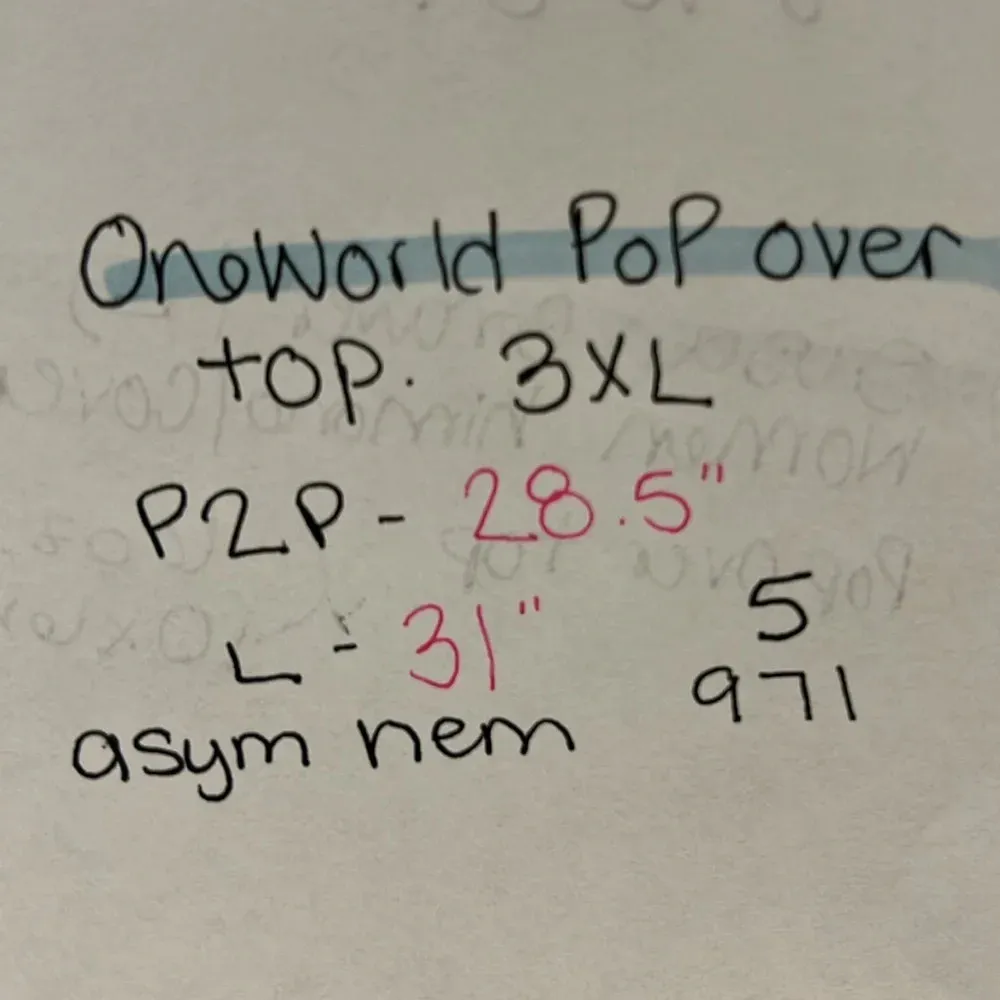 OneWorld PoP over
top. 3XL
P2P - 28.5"
L - 31"
5
971
asym hem